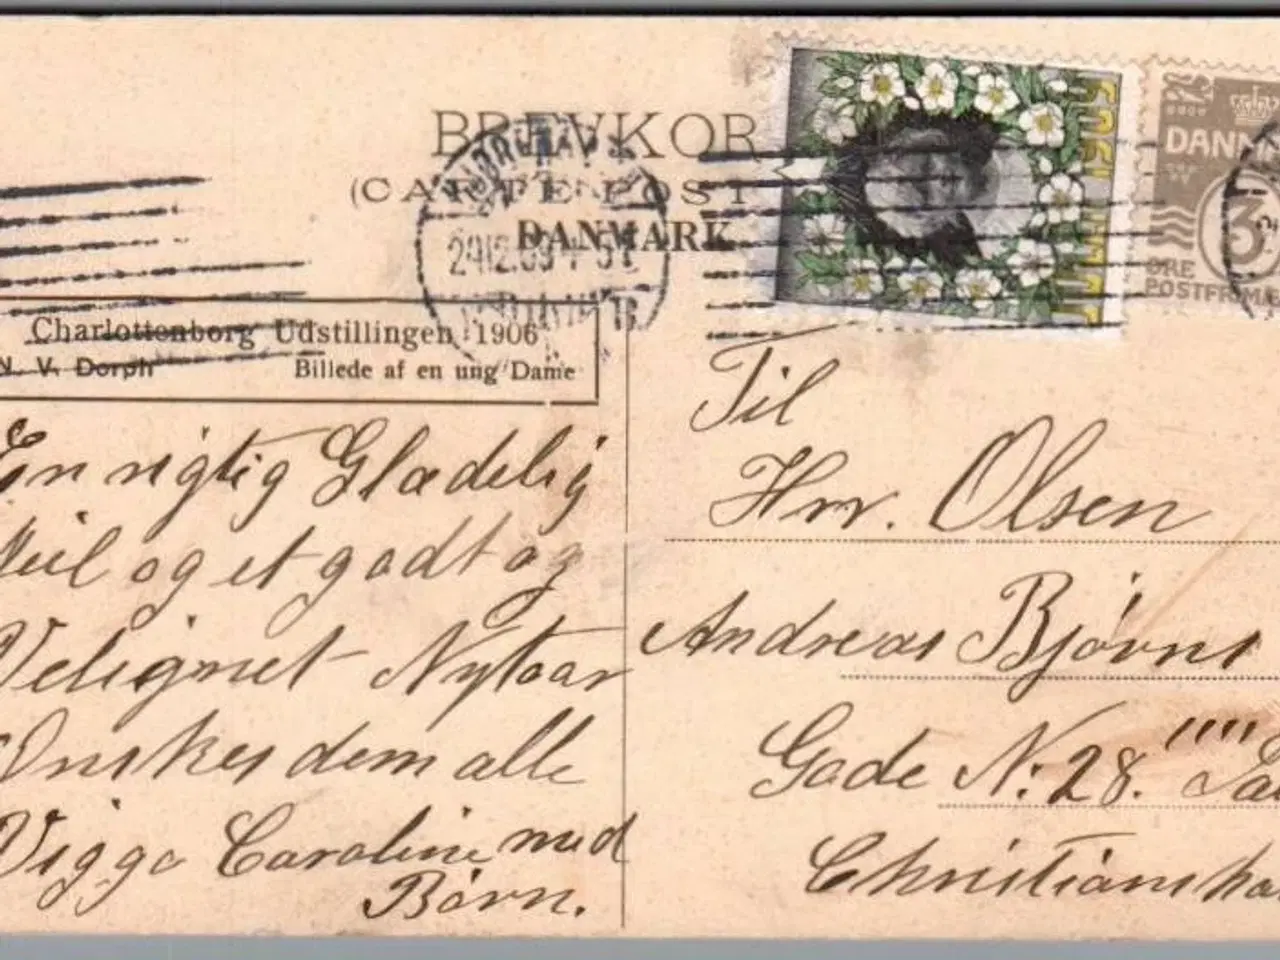 BREVKOR
(CARTE POST
DANMARK
JULEN 1909
DANM
3
ØRE
POSTFRIM
Charlottenborg Udstillingen 1906
N. V. Dorph Billede af en ung Dame
En rigtig Glædelig
Juil og et godt og
Velignet Nytaar
Ønskes dem alle
Viggo Caroline med
Børn.
Til
Hrr. Olsen
Andreas Bjørns
Gade N: 28. """
Christiansha